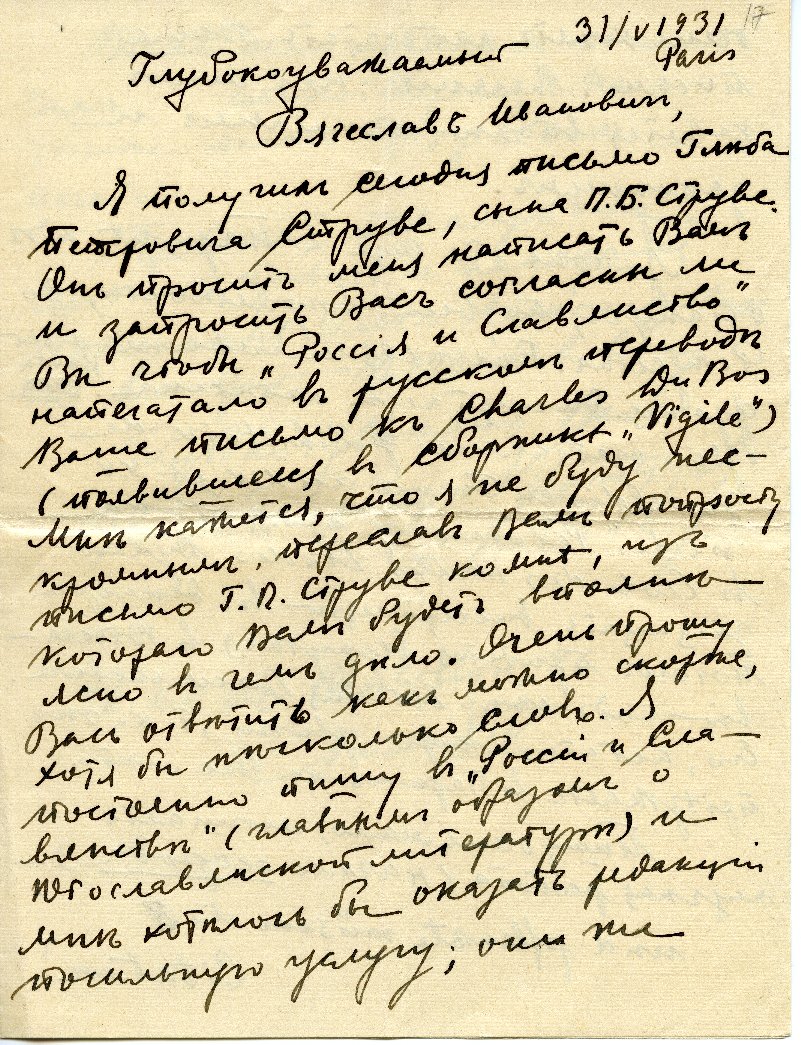 17
31/V 1931
Paris
Глубокоуважаемый
Вячеславъ Ивановичъ,
Я получилъ сегодня письмо Глѣба
Петровича Струве, сына П. Б. Струве.
Онъ проситъ меня написать Вамъ
и запросить Васъ согласны ли
Вы чтобы „Россія и Славянство"
напечатало въ русскомъ переводѣ
Ваше письмо къ Charles Du Bos
(появившееся въ сборникѣ „Vigile")
Мнѣ кажется, что я не буду нес-
кромнымъ, переславъ Вамъ попросту
письмо Г. П. Струве ко мнѣ, изъ
котораго Вамъ будетъ вполнѣ
ясно въ чемъ дѣло. Очень прошу
Васъ отвѣтить какъ можно скорѣе,
хотя бы нѣсколько словъ. Я
постоянно пишу въ „Россіи и Сла-
вянствѣ" (главнымъ образомъ о
югославянской литературѣ) и
мнѣ хотѣлось бы оказать редакціи
посильную услугу; они же